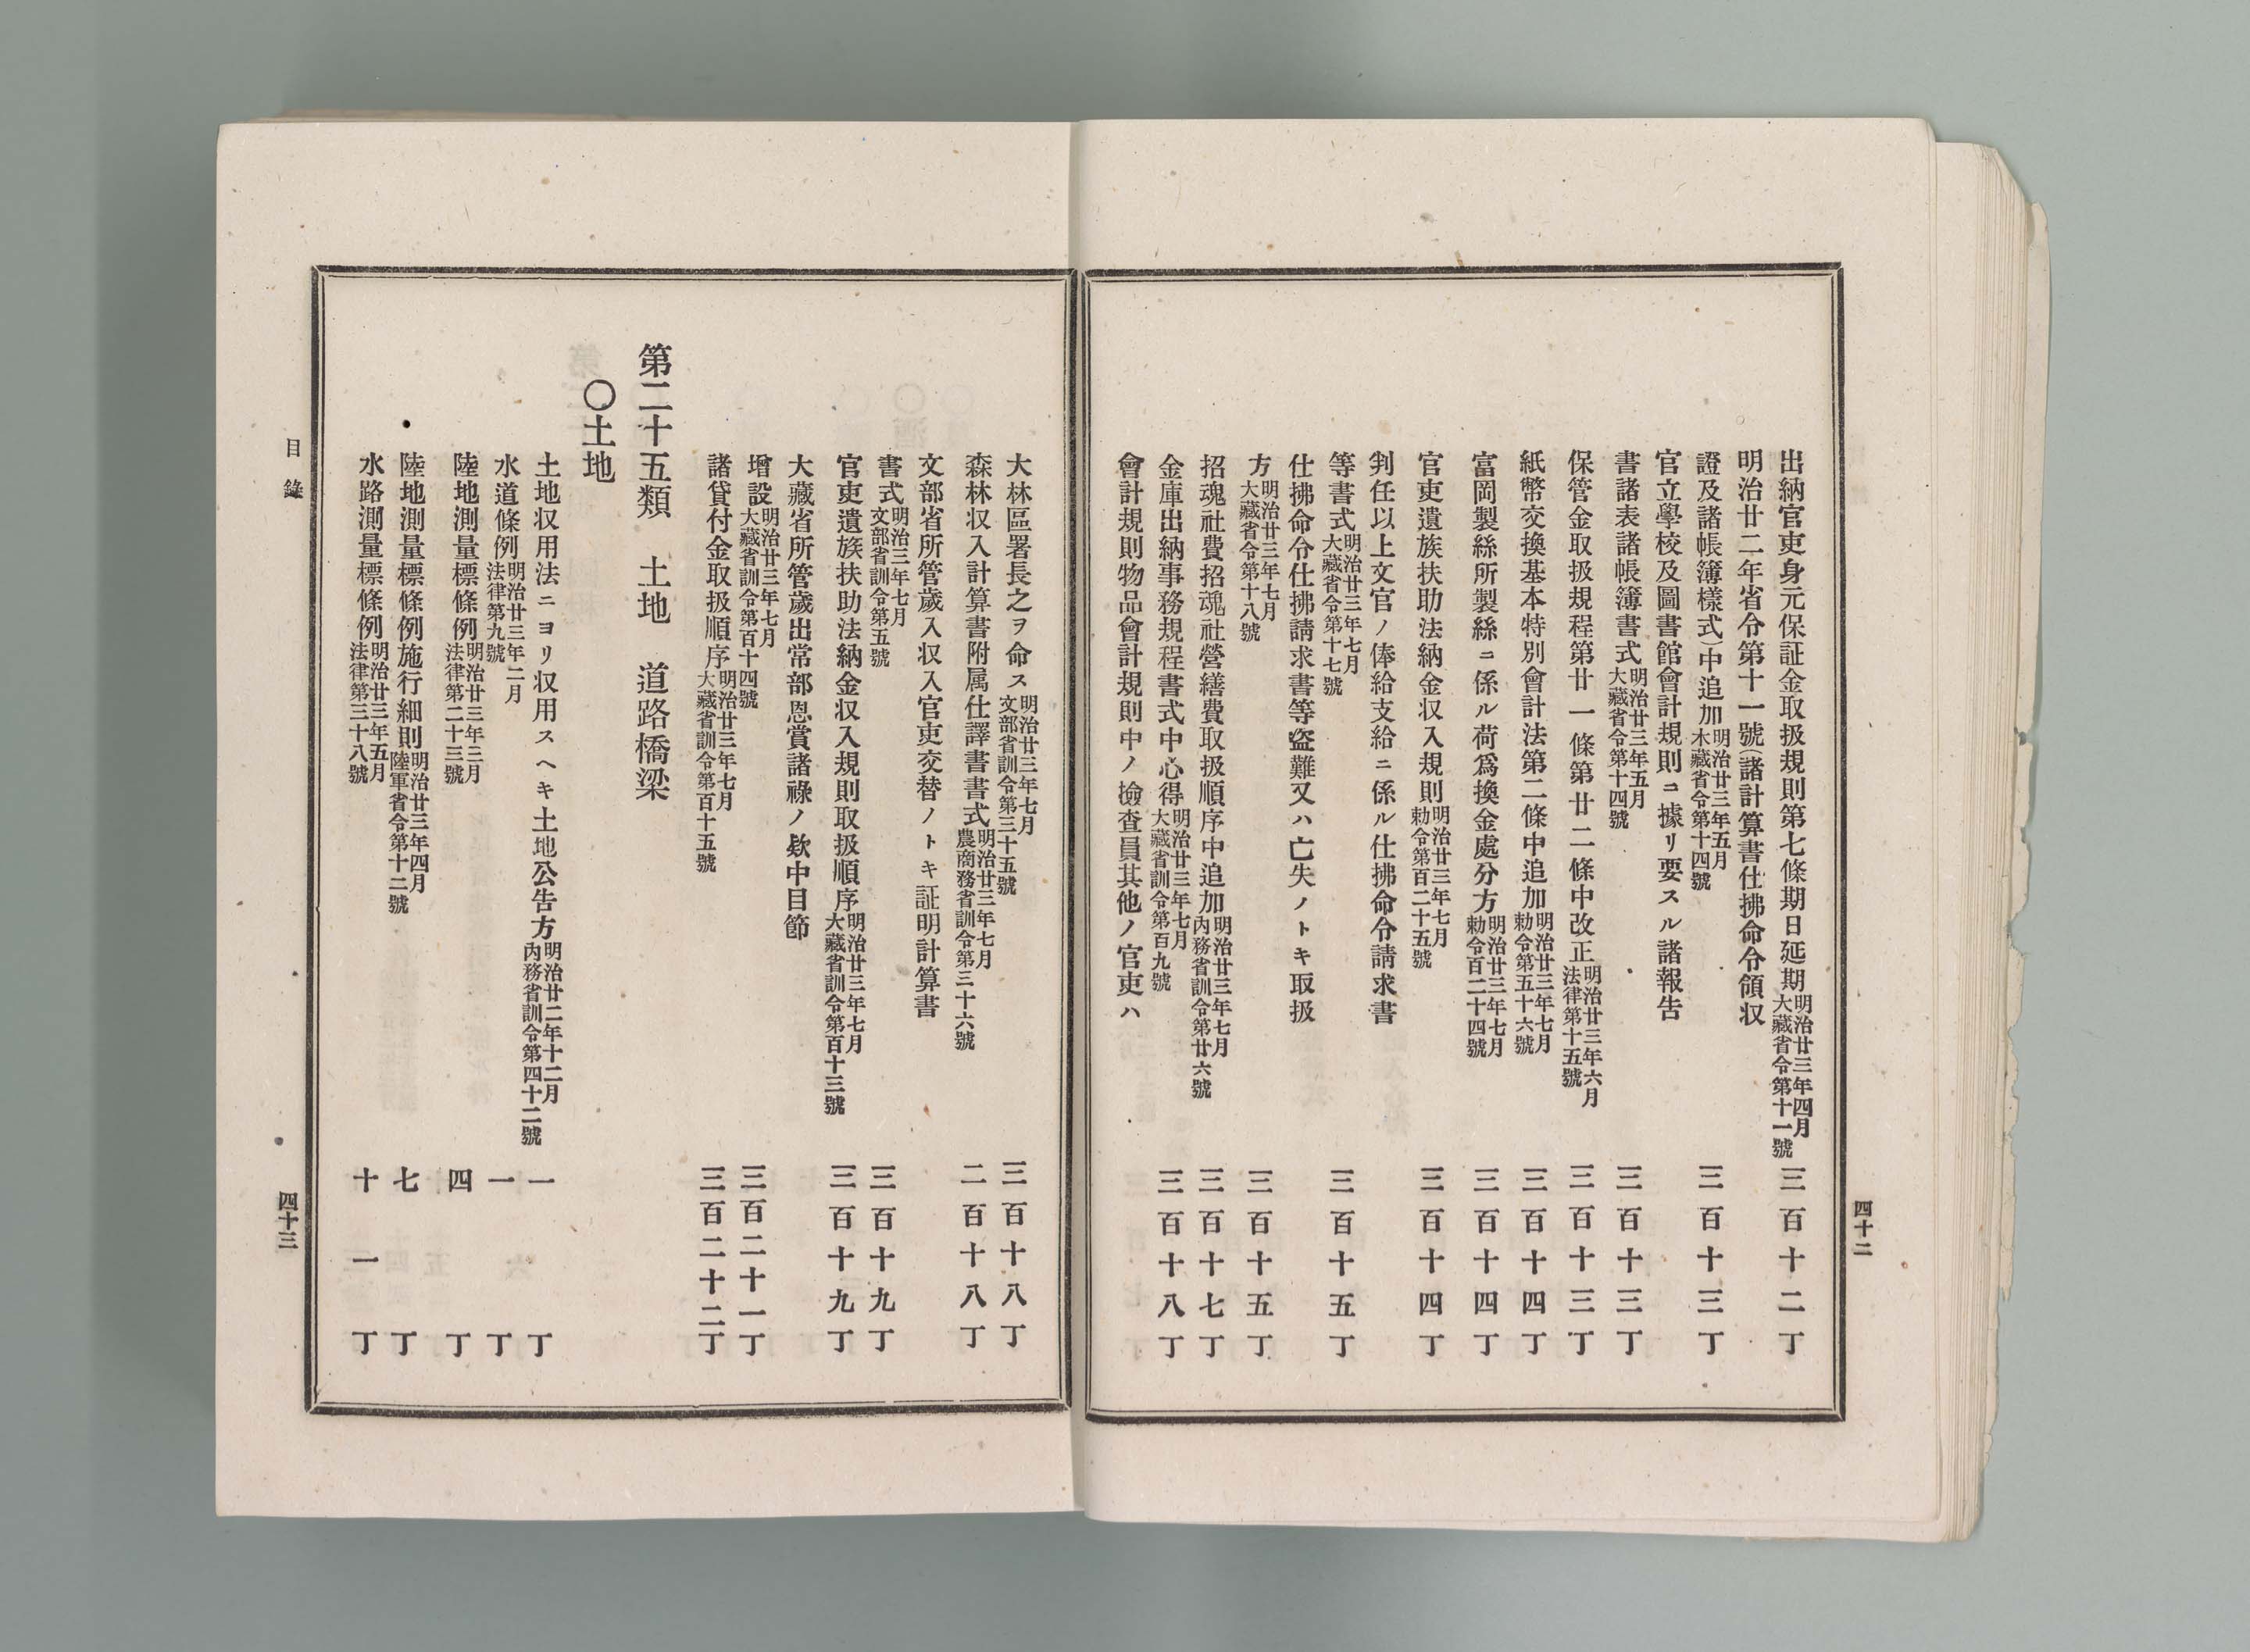 四十二
出納官吏身元保証金取扱規則第七條期日延期明治廿三年四月大藏省令第十一號 三百十二丁
明治廿二年省令第十一號(諸計算書仕拂命令領収
證及諸帳簿樣式)中追加明治廿三年五月木藏省令第十四號 三百十三丁
官立學校及圖書館會計規則ニ據リ要スル諸報告
書諸表諸帳簿書式明治廿三年五月大藏省令第十四號 三百十三丁
保管金取扱規程第廿一條第廿二條中改正明治廿三年六月法律第十五號 三百十三丁
紙幣交換基本特別會計法第二條中追加明治廿三年七月勅令第五十六號 三百十四丁
富岡製絲所製絲ニ係ル荷爲換金處分方明治廿三年七月勅令百二十四號 三百十四丁
官吏遺族扶助法納金収入規則明治廿三年七月勅令第百二十五號 三百十四丁
判任以上文官ノ俸給支給ニ係ル仕拂命令請求書
等書式明治廿三年七月大藏省令第十七號 三百十五丁
仕拂命令仕拂請求書等盗難又ハ亡失ノトキ取扱
方明治廿三年七月大藏省令第十八號 三百十五丁
招魂社費招魂社營繕費取扱順序中追加明治廿三年七月內務省訓令第廿六號 三百十七丁
金庫出納事務規程書式中心得明治廿三年七月大藏省訓令第百九號 三百十八丁
會計規則物品會計規則中ノ檢查員其他ノ官吏ハ
大林區署長之ヲ命ス明治廿三年七月文部省訓令第三十五號 三百十八丁
森林収入計算書附属仕譯書書式明治廿三年七月農商務省訓令第三十六號 二百十八丁
文部省所管歲入収入官吏交替ノトキ証明計算書
書式明治三年七月文部省訓令第五號 三百十九丁
官吏遺族扶助法納金収入規則取扱順序明治廿三年七月大藏省訓令第百十三號 三百十九丁
大藏省所管歲出常部恩賞諸祿ノ欵中目節
增設明治廿三年七月大藏省訓令第百十四號 三百二十一丁
諸貸付金取扱順序明治廿三年七月大藏省訓令第百十五號 三百二十二丁
第二十五類 土地 道路橋梁
〇土地
土地収用法ニヨリ収用スヘキ土地公告方明治廿二年十二月內務省訓令第四十二號 一丁
水道條例明治廿三年二月法律第九號 一丁
陸地測量標條例明治廿三年三月法律第二十三號 四丁
陸地測量標條例施行細則明治廿三年四月陸軍省令第十二號 七丁
水路測量標條例明治廿三年五月法律第三十八號 十一丁
目錄
四十三